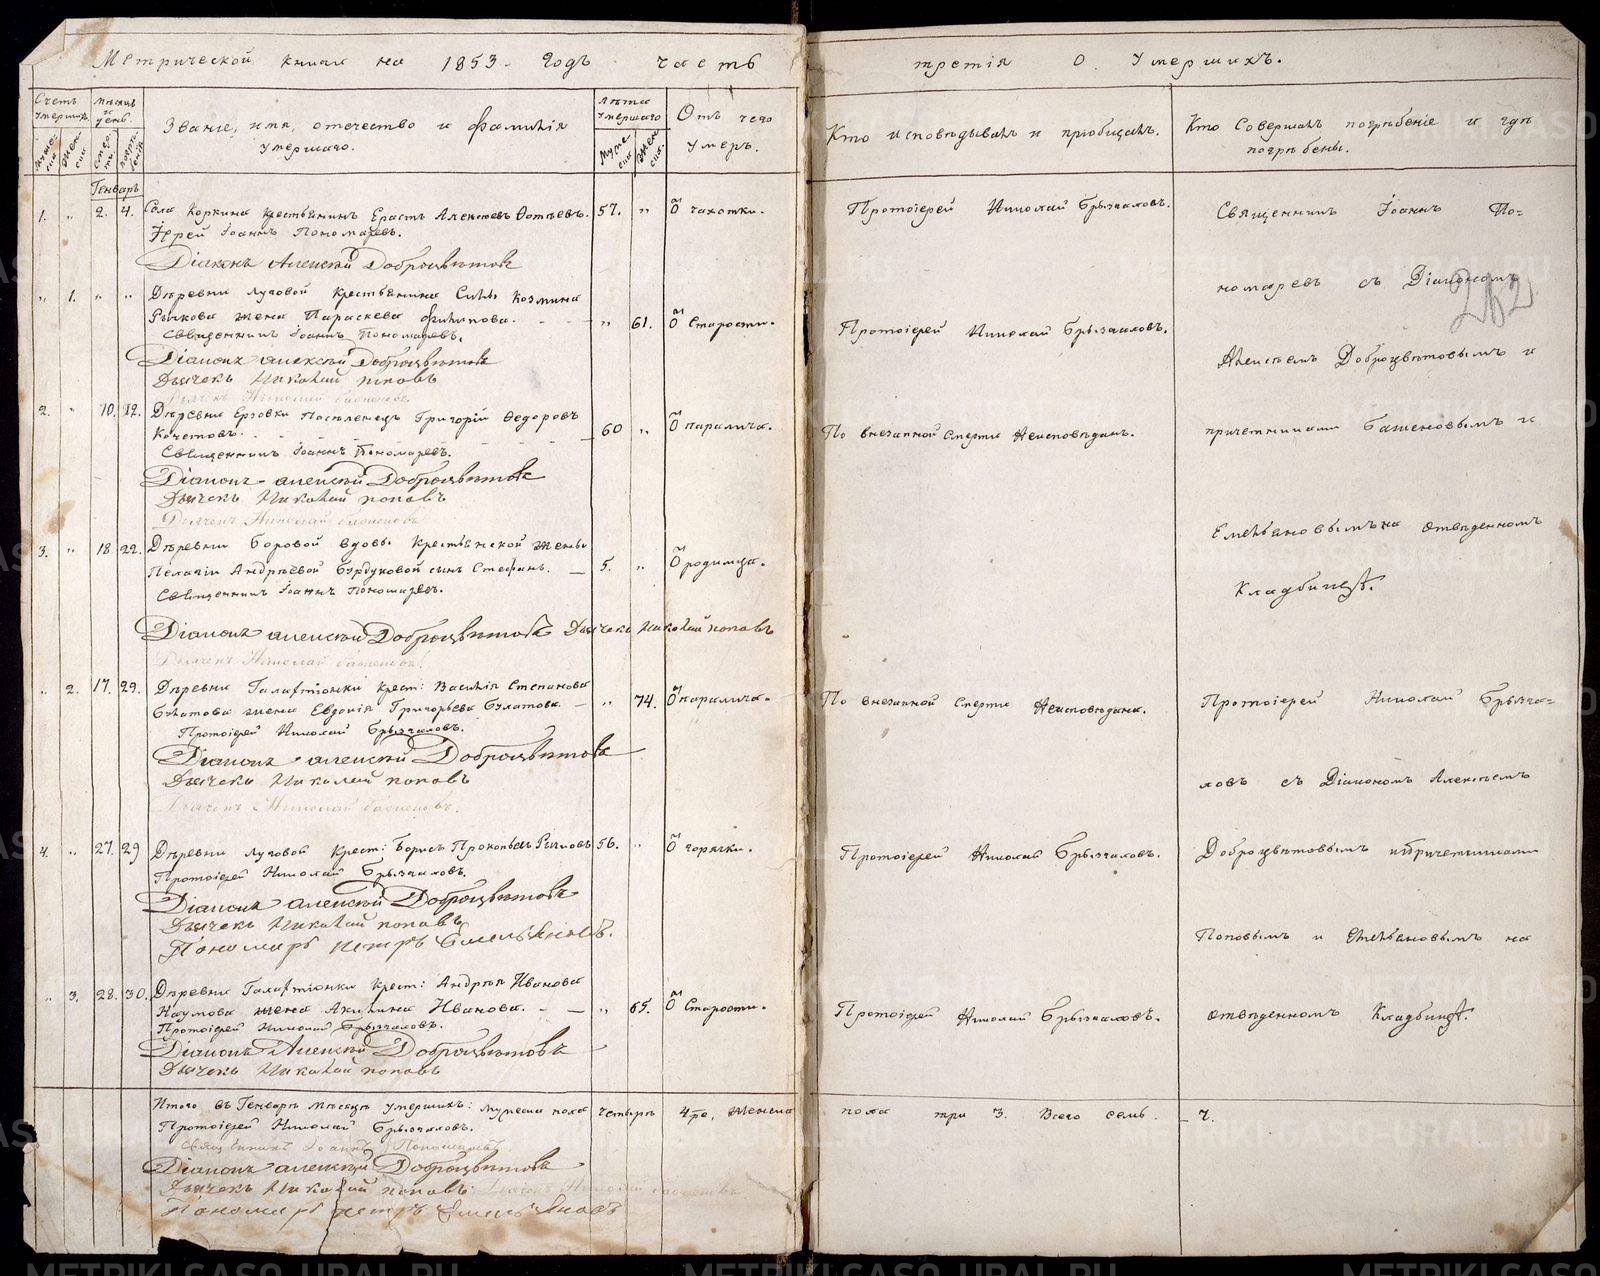 Метрической книги на 1853. годъ часть третія о умершихъ.
Счетъ умершихъ.
Мужеска
Женска
Мѣсяцъ и день.
Званіе, имя, отечество и фамилія умершаго.
Лѣта умершаго
Мужеска
Женска
Отъ чего умеръ.
Кто исповѣдывалъ и пріобщалъ.
Кто совершалъ погребеніе и гдѣ погребены.
Генварь
1. " 2. 4. Села Коркина крестьянинъ Ерастъ Алексѣевъ Фотѣевъ. 57. " Ѿ чахотки. Протоіерей Николай Брызгаловъ.
Іерей Іоаннъ Пономаревъ.
Діаконъ Алексѣй Доброцвѣтовъ
" 1. " " Деревни Луговой крестьянина Силы Козмина
Рычкова жена Параскева Филипова. " 61. Ѿ Старости. Протоіерей Николай Брызгаловъ.
Священникъ Іоаннъ Пономаревъ.
Діаконъ алексѣй Доброцвѣтовъ
Дьячекъ Николай поповъ
2. " 10. 12. Деревни Ерзовки Поселенецъ Григорій Ѳедоровъ
Кочетовъ. 60 " Ѿ паралича. По внезапной смерти Неисповѣданъ.
Священникъ Іоаннъ Пономаревъ.
Діаконъ алексѣй Доброцвѣтовъ
Дьячекъ Николай поповъ
3. " 18 22. Деревни Боровой вдовы Крестьянской жены
Пелагіи Андреевой Бурдуковой сынъ Стефанъ. 5. " Ѿ родимца.
Священникъ Іоаннъ Пономаревъ.
Діаконъ алексѣй Доброцвѣтовъ Дьячекъ Николай поповъ
" 2. 17. 29. Деревни Галактіонки крест: Василія Степанова
Булатова жена Евдокія Григорьева Булатова. " 74. Ѿ паралича. По внезапной смерти Неисповѣдана.
Протоіерей Николай Брызгаловъ.
Діаконъ алексѣй Доброцвѣтовъ
Дьячекъ Николай поповъ
4. " 27. 29 Деревни Луговой Крест: Борисъ Прокопьевъ Рычковъ 56. " Ѿ горячки. Протоіерей Николай Брызгаловъ.
Протоіерей Николай Брызгаловъ.
Діаконъ алексѣй Доброцвѣтовъ
Дьячекъ Николай поповъ
Пономарь петръ Емельяновъ.
" 3. 28. 30. Деревни Галактіонки Крест: Андрея Иванова
Наумова жена Акилина Иванова. " 65. Ѿ Старости. Протоіерей Николай Брызгаловъ.
Протоіерей Николай Брызгаловъ.
Діаконъ Алексѣй Доброцвѣтовъ
Дьячекъ Николай поповъ
Священникъ Іоаннъ По=
номаревъ съ Діакономъ
262
Алексѣемъ Доброцвѣтовымъ и
причетниками Баженовымъ и
Емельяновымъ на отведенномъ
Кладбищѣ.
Протоіерей Николай Брызга=
ловъ съ Діакономъ Алексѣемъ
Доброцвѣтовымъ и причетниками
Поповымъ и Емельяновымъ на
отведенномъ Кладбищѣ.
Итого въ Генварѣ мѣсяцѣ умершихъ: мужеска пола четыре 4ре, женска пола три 3. Всего семь 7.
Протоіерей Николай Брызгаловъ.
Священникъ Іоаннъ Пономаревъ
Діаконъ алексѣй Доброцвѣтовъ
Дьячекъ Николай поповъ
Пономарь петръ Емельяновъ
METRIKI.CASO-URAL.RU